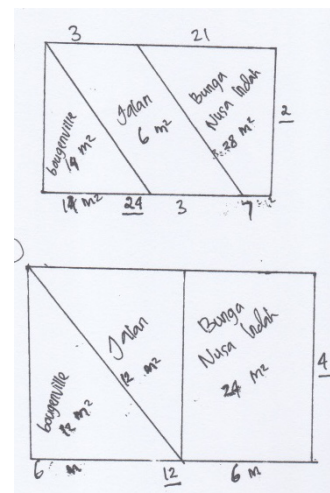 3 21
bougenville
14 m²
Jalan
6 m²
Bunga
Nusa Indah
28 m²
2
14 m² 24 3 7
bougenville
12 m²
Jalan
12 m²
Bunga
Nusa Indah
24 m²
4
6 m 12 6 m